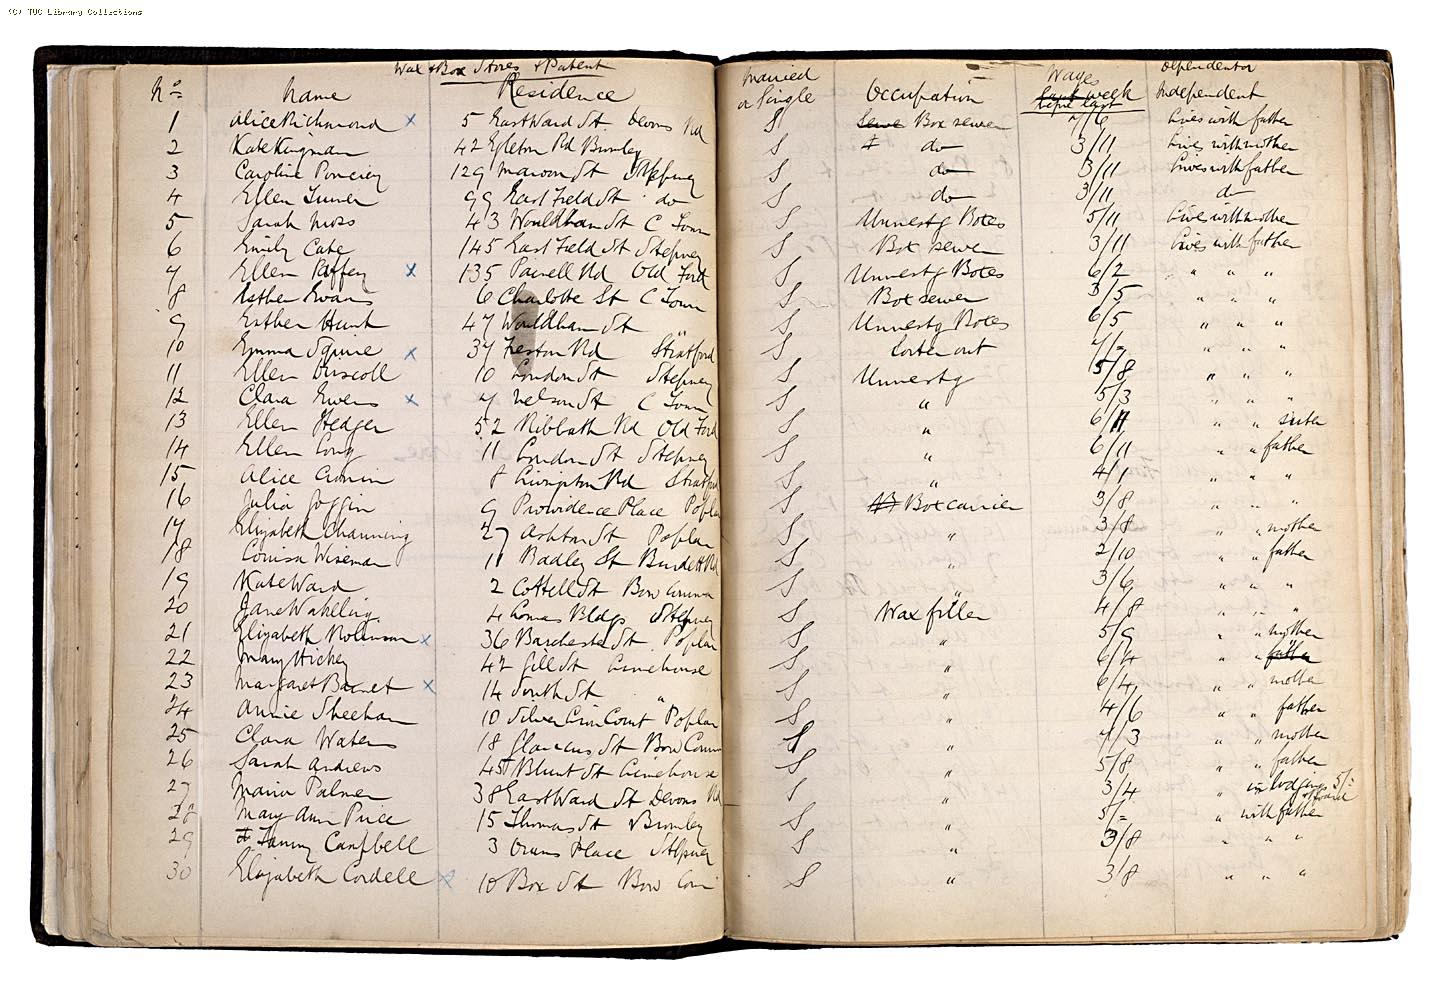 (C) TUC Library Collections
Wax & Box Stores & Patent
No Name Residence Married or Single Occupation Wages last week Dependent or Independent
1 Alice Richmond x 5 Eastward St. Devons Rd S Sewe Box sewer 7/6 Lives with father
2 Kate Kingman 42 Egleton Rd Bromley S do 3/11 Lives with mother
3 Caroline 129 Maroon St Stepney S do 3/11 Lives with father
4 Ellen Turner 99 East Field St do S do 3/11 do
5 Sarah Moss 43 Wouldham St C Town S 5/11 Lives with mother
6 Emily Cate 145 East Field St Stepney S Box sewer 3/11 Lives with father
7 Ellen x 135 Parnell Rd Old Ford S 6/2 " " "
8 Esther Evans 6 Charlotte St C Town S Box sewer 3/5 " " "
9 Esther Hunt 47 Wouldham St " S 6/5 " " "
10 Emma Squire x 37 Rd Stratford S Sorter out 7/= " " "
11 Ellen Driscoll 10 London St Stepney S 5/8 " " "
12 Clara Ewens x 7 Nelson St C Town S " 5/3 " " "
13 Ellen Hedger 52 Ribbath Rd Old Ford S " 6/11 " " sister
14 Ellen Long 11 London St Stepney S " 6/11 " " father
15 Alice Cronin 8 Livington Rd Stratford S " 4/1 " " "
16 Julia Joggin 9 Providence Place Poplar S Box carrier 3/8 " " "
17 Elizabeth Channing 27 Ashton St Poplar S " 3/8 " " mother
18 Louisa Wiseman 11 Badley St Burdett Rd S " 2/10 " " father
19 Kate Ward 2 Cottell St Bow Common S " 3/6 " " "
20 Jane Wakeling 4 Lomas Bldgs Stepney S Wax filler 4/8 " " "
21 Elizabeth Robinson x 36 Barchester St Poplar S " 5/9 " " mother
22 Mary Hickey 47 Gill St Limehouse S " 6/4 " " father
23 Margaret Barnet x 14 South St " S " 6/4 " " mother
24 Annie Sheehan 10 Silver Lion Court Poplar S " 4/6 " " father
25 Clara Waters 18 Glaucus St Bow Comm S " 7/3 " " mother
26 Sarah Andrews 45 Blunt St Limehouse S " 5/8 " " father
27 Maria Palmer 38 Eastward St Devons Rd S " 3/4 " in lodgings 5/- & board
28 Mary Ann Price 15 Thomas St Bromley S " 5/= " with father
29 Fanny Campbell 3 Orums Place Stepney S " 3/8 " " "
30 Elizabeth Cordell x 10 Box St Bow Com S " 3/8 " " "